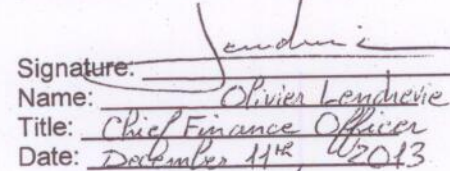 Signature: Lendrevie
Name: Olivier Lendrevie
Title: Chief Finance Officer
Date: December 11th 2013